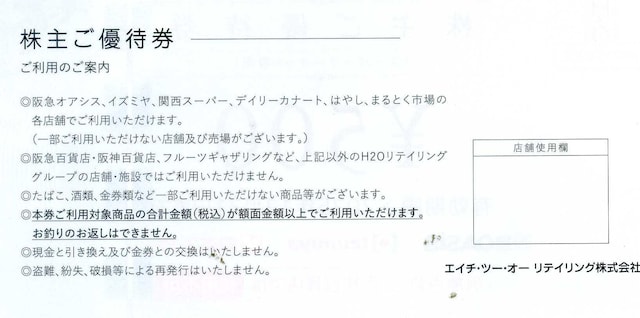 株主ご優待券
ご利用のご案内
◎阪急オアシス、イズミヤ、関西スーパー、デイリーカナート、はやし、まるとく市場の
各店舗でご利用いただけます。
（一部ご利用いただけない店舗及び売場がございます。）
◎阪急百貨店・阪神百貨店、フルーツギャザリングなど、上記以外のH2Oリテイリング
グループの店舗・施設ではご利用いただけません。
◎たばこ、酒類、金券類など一部ご利用いただけない商品等がございます。
◎本券ご利用対象商品の合計金額(税込)が額面金額以上でご利用いただけます。
お釣りのお返しはできません。
◎現金と引き換え及び金券との交換はいたしません。
◎盗難、紛失、破損等による再発行はいたしません。
店舗使用欄
エイチ・ツー・オー リテイリング株式会社